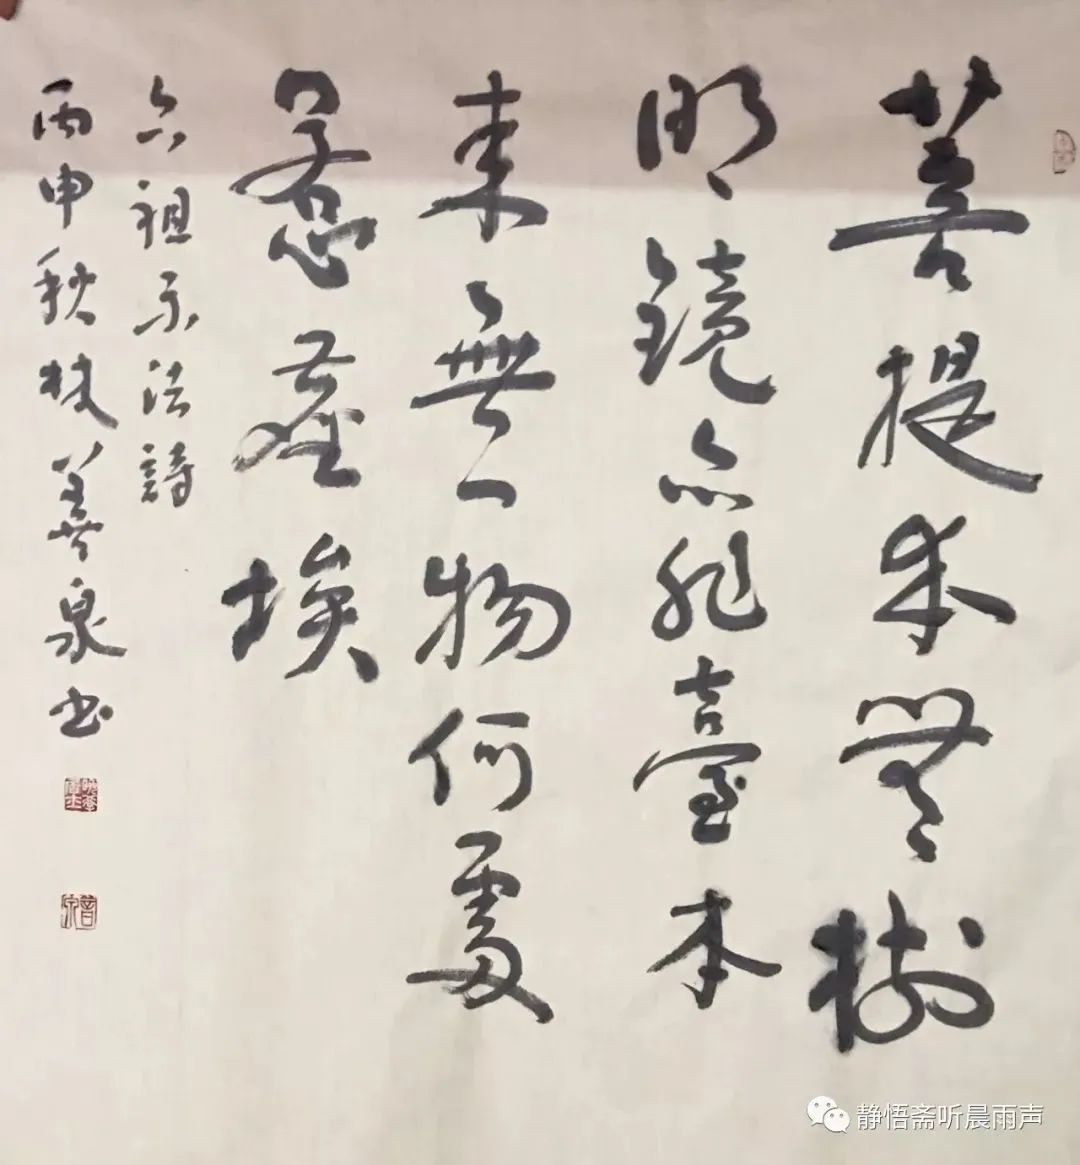 菩提本無樹
明鏡亦非臺本
来無一物何處
惹塵埃
六祖示法詩
丙申秋善泉书
静悟斋听晨雨声